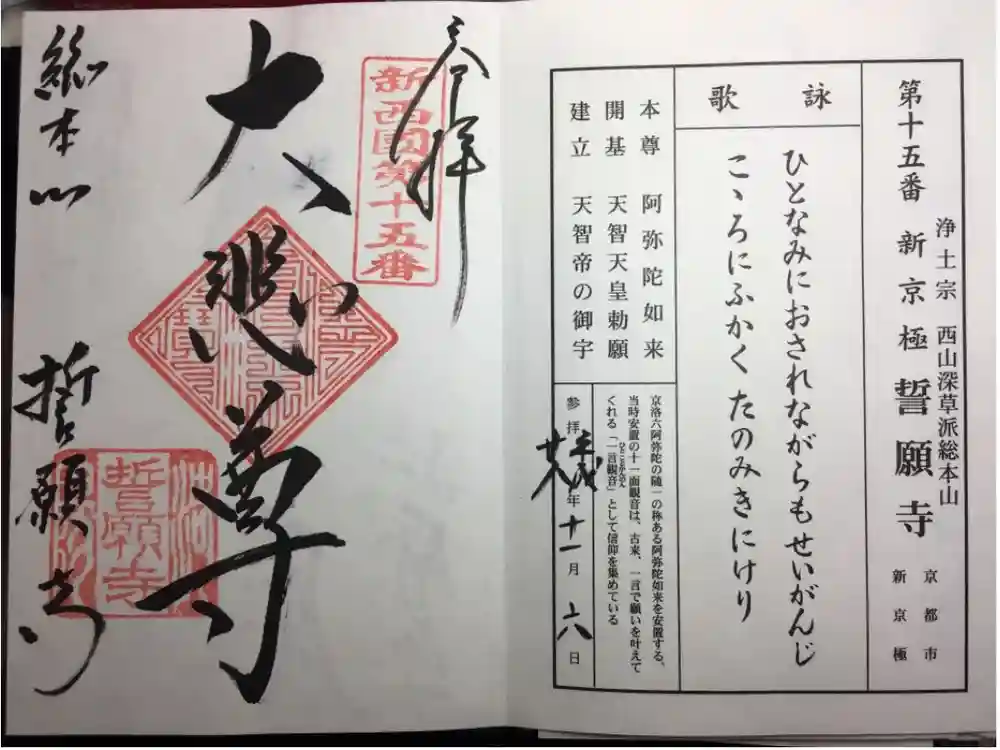 浄土宗 西山深草派総本山
第十五番 新京極 誓願寺
京都市
新京極
詠歌
ひとなみにおされながらもせいがんじ
こゝろにふかくたのみきにけり
本尊 阿弥陀如来
開基 天智天皇勅願
建立 天智帝の御宇
京洛六阿弥陀の随一の称ある阿弥陀如来を安置する。
当時安置の十一面観音は、古来、一言で願いを叶えて
くれる「一言観音」として信仰を集めている
ひとことかんのん
参拝平成廿八年十一月六日
奉拝
新西國第十五番
大悲尊
総本山 誓願寺
誓願寺